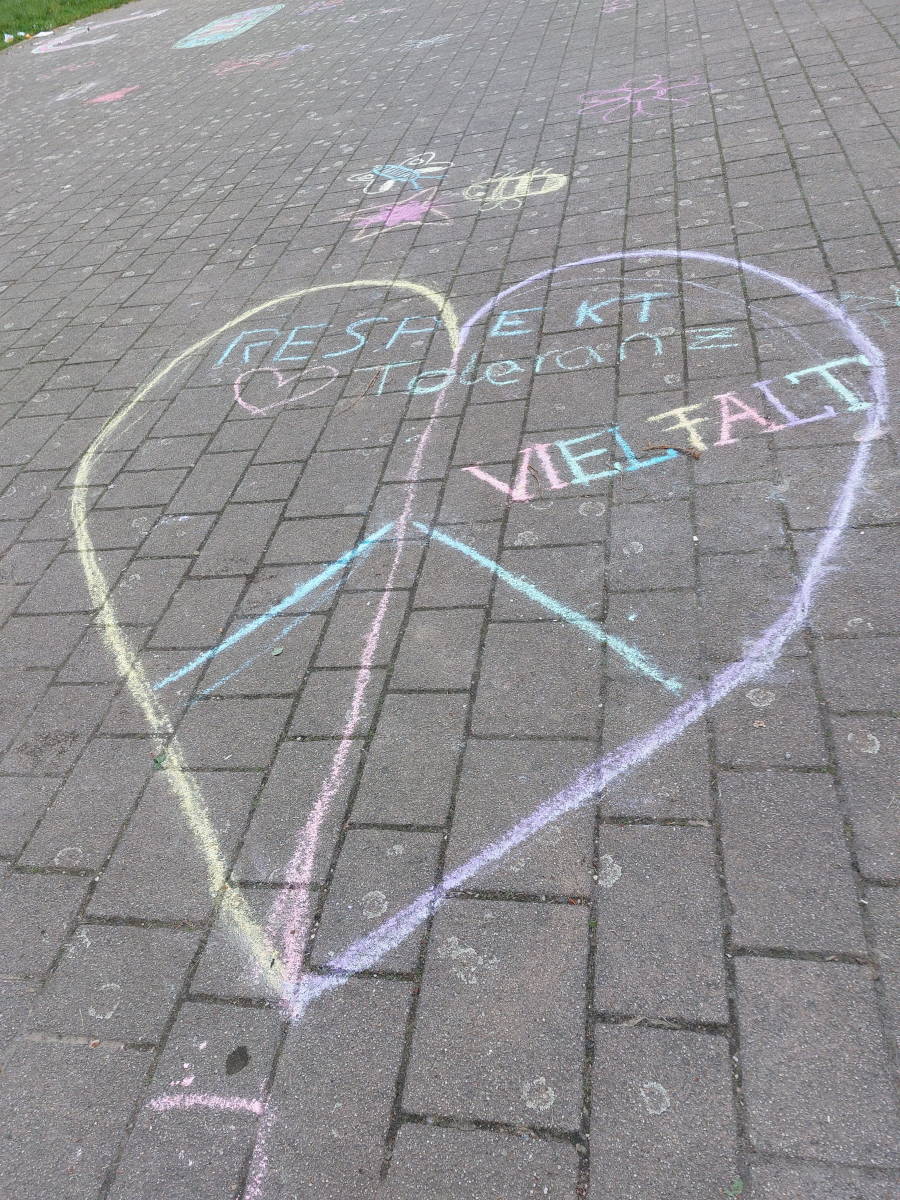 RESPEKT
Toleranz
VIELFALT